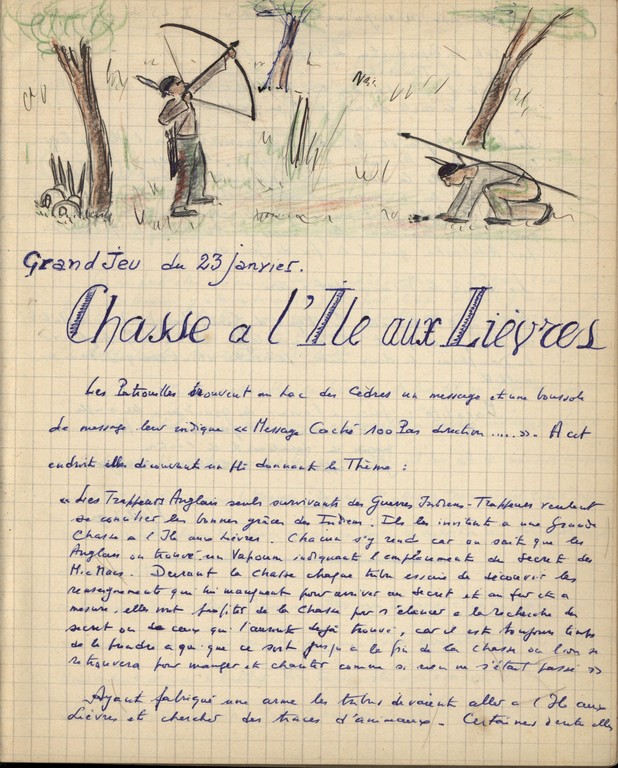 Grand Jeu du 23 janvier.
Chasse a l'Ile aux Lièvres
Les Patrouilles trouvent au Lac des Cèdres un message et une boussole
Le message leur indique « Message Caché 100 Pas direction ..... ». A cet
endroit elles découvrent un pli donnant le Thème :
« Les Trappeurs Anglais seuls survivants des Guerres Indiens-Trappeurs veulent
se concilier les bonnes grâces des Indiens. Ils les invitent a une Grande
Chasse a l'Ile aux Lièvres. Chacun s'y rend car on sait que les
Anglais ont trouvé un indiquant l'emplacement du Secret des
Mic Macs. Durant la Chasse chaque tribu essaie de découvrir les
renseignements qui lui manquent pour arriver au Secret et au fur et a
mesure, elles vont profiter de la Chasse pour s'élancer a la recherche du
secret ou de ceux qui l'auront déjà trouvé, car il est toujours temps
de le prendre a qui que ce soit jusqu'a la fin de la Chasse ou l'on se
retrouvera pour manger et chanter comme si rien ne s'était passé »
Ayant fabriqué une arme les tribus devaient aller a l'Ile aux
Lièvres et chercher des traces d'animaux. Certaines d'entre elles